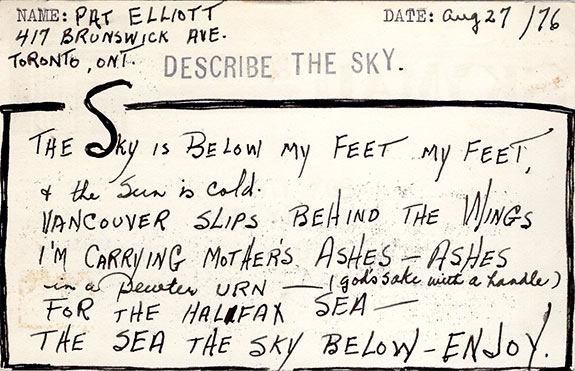 NAME: PAT ELLIOTT DATE: Aug 27 / 76
417 BRUNSWICK AVE.
TORONTO, ONT. DESCRIBE THE SKY.
THE Sky is BELOW MY FEET MY FEET,
& the Sun is cold.
VANCOUVER SLIPS BEHIND THE WINGS
I'M CARRYING MOTHER'S ASHES – ASHES
in a Pewter URN — (god's sake with a handle)
FOR THE HALIFAX SEA —
THE SEA THE SKY BELOW – ENJOY.